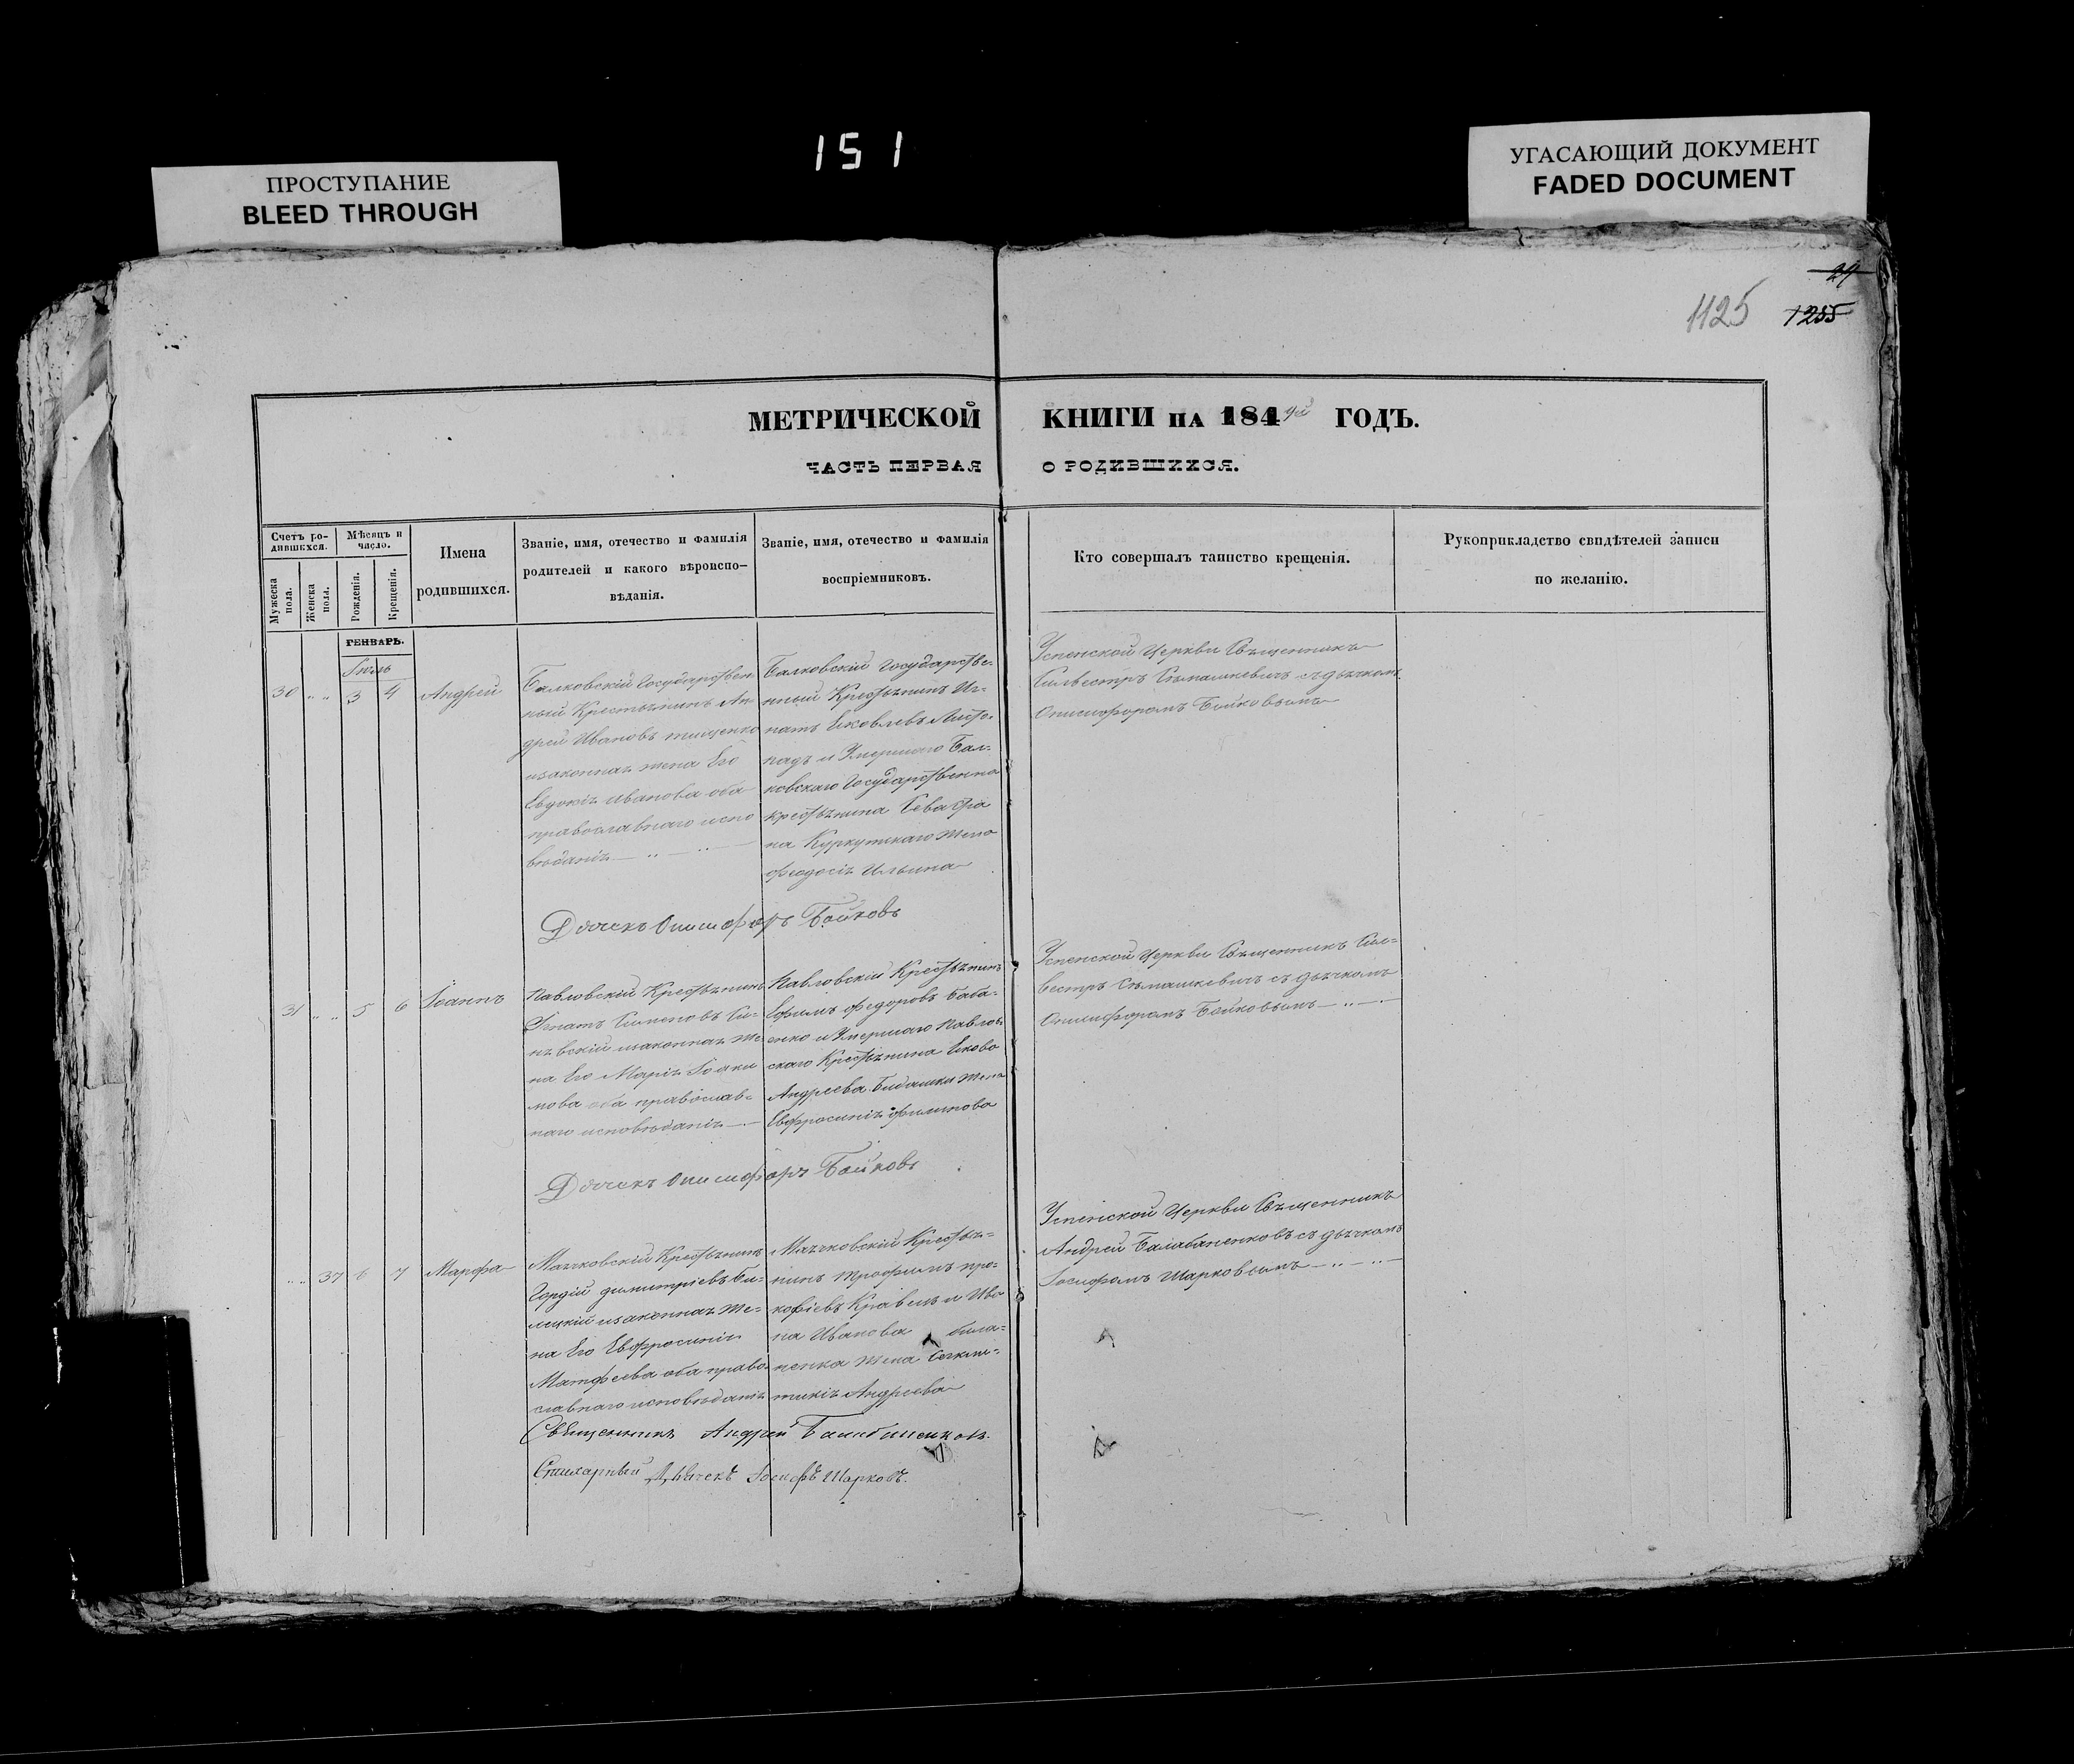 151
ПРОСТУПАНИЕ
BLEED THROUGH
УГАСАЮЩИЙ ДОКУМЕНТ
FADED DOCUMENT
24
1125 1255
МЕТРИЧЕСКОЙ КНИГИ НА 184 ГОДЪ.
ЧАСТЬ ПЕРВАЯ О РОДИВШИХСЯ.
Счетъ ро-
дившихся.
Мужеска пола.
Женска пола.
Мѣсяцъ и
число.
Рожденія.
Крещенія.
Имена
родившихся.
Званіе, имя, отечество и фамилія
родителей и какого вѣроиспо-
вѣданія.
Званіе, имя, отечество и фамилія
воспріемниковъ.
Кто совершалъ таинство крещенія.
Рукоприкладство свидѣтелей записи
по желанію.
ГЕНВАРЬ.
30 " " 3 4 Андрей
Балковскій Государствен
ный Крестьянинъ Ан
дрей Ивановъ тищенко
изаконная жена Его
Евдокія иванова оба
православнаго испо
вѣданія
Балковскій Государстве-
нный Крестьянинъ Иг-
натъ Яковлевъ
и Умершаго Бал-
ковскаго Государственна
крестьянина
на Куркутскаго жена
феодосія Ильина
Успенской Церкви Священникъ
Силвестръ Сѣмашкевичъ съ дьячкомъ
Онисифоромъ Бойковымъ
Дьячекъ Онисифоръ Бойковъ
31 " " 5 6 Іоаннъ
Павловскій Крестьянинъ
Игнатъ Симеоновъ Си-
нявскій изаконная же
на Его Марія Іоаки
мова оба православ-
наго исповѣданія
Павловскій Крестьянинъ
Ефимъ федоровъ баба-
енко и Умершаго Павлов
скаго Крестьянина Якова
Андреева жена
Евфросинія филипова
Успенской Церкви Священникъ Сил-
вестръ Сѣмашкевичъ съ дьячкомъ
Онисифоромъ Бойковымъ
Дьячекъ Онисифоръ Бойковъ
" " 37 6 7 Марфа
Маячковскій Крестьянинъ
Гордій димитріевъ Би-
лецкій изаконная же-
на Его Евфросинія
Матфеева оба право
славнаго исповѣданія
Маячковскій Крестья-
нинъ трофимъ про-
кофіевъ Кравецъ и Ива
на Иванова била-
ненка жена Секли-
тикія Андреева
Успенской Церкви Священникъ
Андрей Балабаненковъ съ дьячкомъ
Іосифомъ Шарковымъ
Священникъ Андрей Балабаненковъ
Дьячекъ Іосифъ Шарковъ.